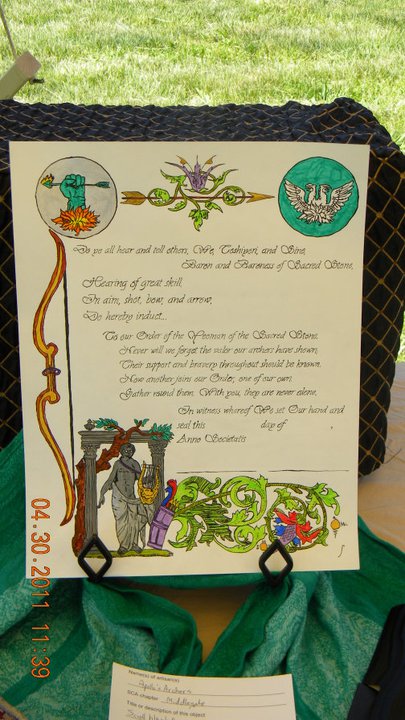 Do ye all hear and tell others, We, Toshiyori, and Sine,
Baron and Baroness of Sacred Stone,
Hearing of great skill,
In aim, shot, bow, and arrow,
Do hereby induct...
To our Order of the Yeoman of the Sacred Stone.
Never will we forget the valor our archers have shown,
Their support and bravery throughout should be known.
Now another joins our Order, one of our own.
Gather round them. With you, they are never alone.
In witness whereof We set Our hand and
seal this day of ,
Anno Societatis
04.30.2011 11:39
Name(s) of artisan(s)
Apollo's Archers
SCA chapter Middlegate
Title or description of this object
Scroll